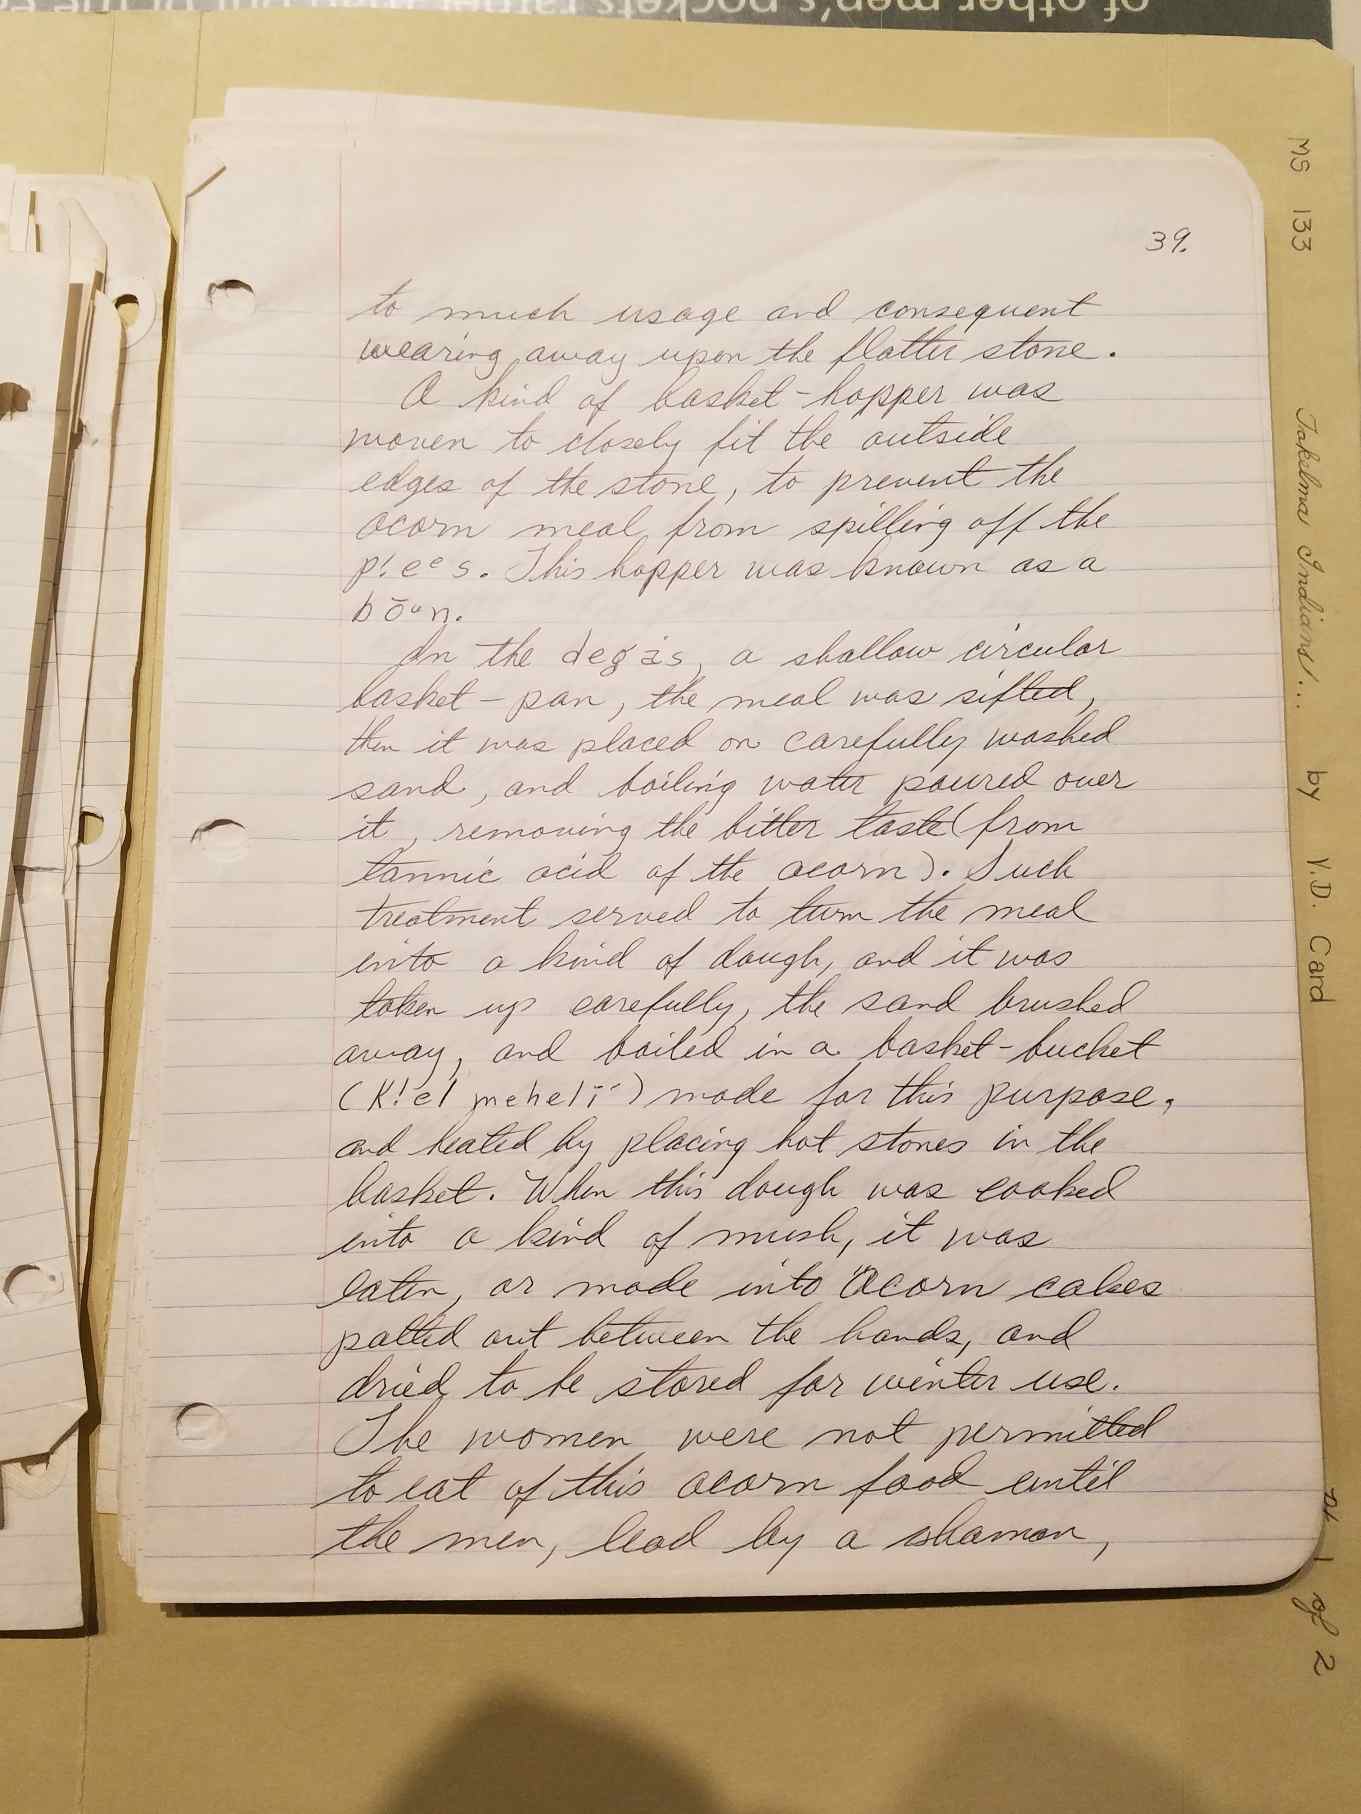 39.
to much usage and consequent
wearing away upon the flatter stone.
A kind of basket-hopper was
woven to closely fit the outside
edges of the stone, to prevent the
acorn meal from spilling off the
p!eᵉs. This hopper was known as a
bōᵘn.
In the degás, a shallow circular
basket-pan, the meal was sifted,
then it was placed on carefully washed
sand, and boiling water poured over
it, removing the bitter taste (from
tannic acid of the acorn). Such
treatment served to turn the meal
into a kind of dough, and it was
taken up carefully, the sand brushed
away, and boiled in a basket-bucket
(K!el mehelīⁱ) made for this purpose,
and heated by placing hot stones in the
basket. When this dough was cooked
into a kind of mush, it was
eaten, or made into "acorn cakes
patted out between the hands, and
dried to be stored for winter use.
The women were not permitted
to eat of this acorn food until
the men, lead by a shaman,
MS 133 Takelma Indians... by V.D. Card pt 1 of 2
of other men's pockets rather than out of the